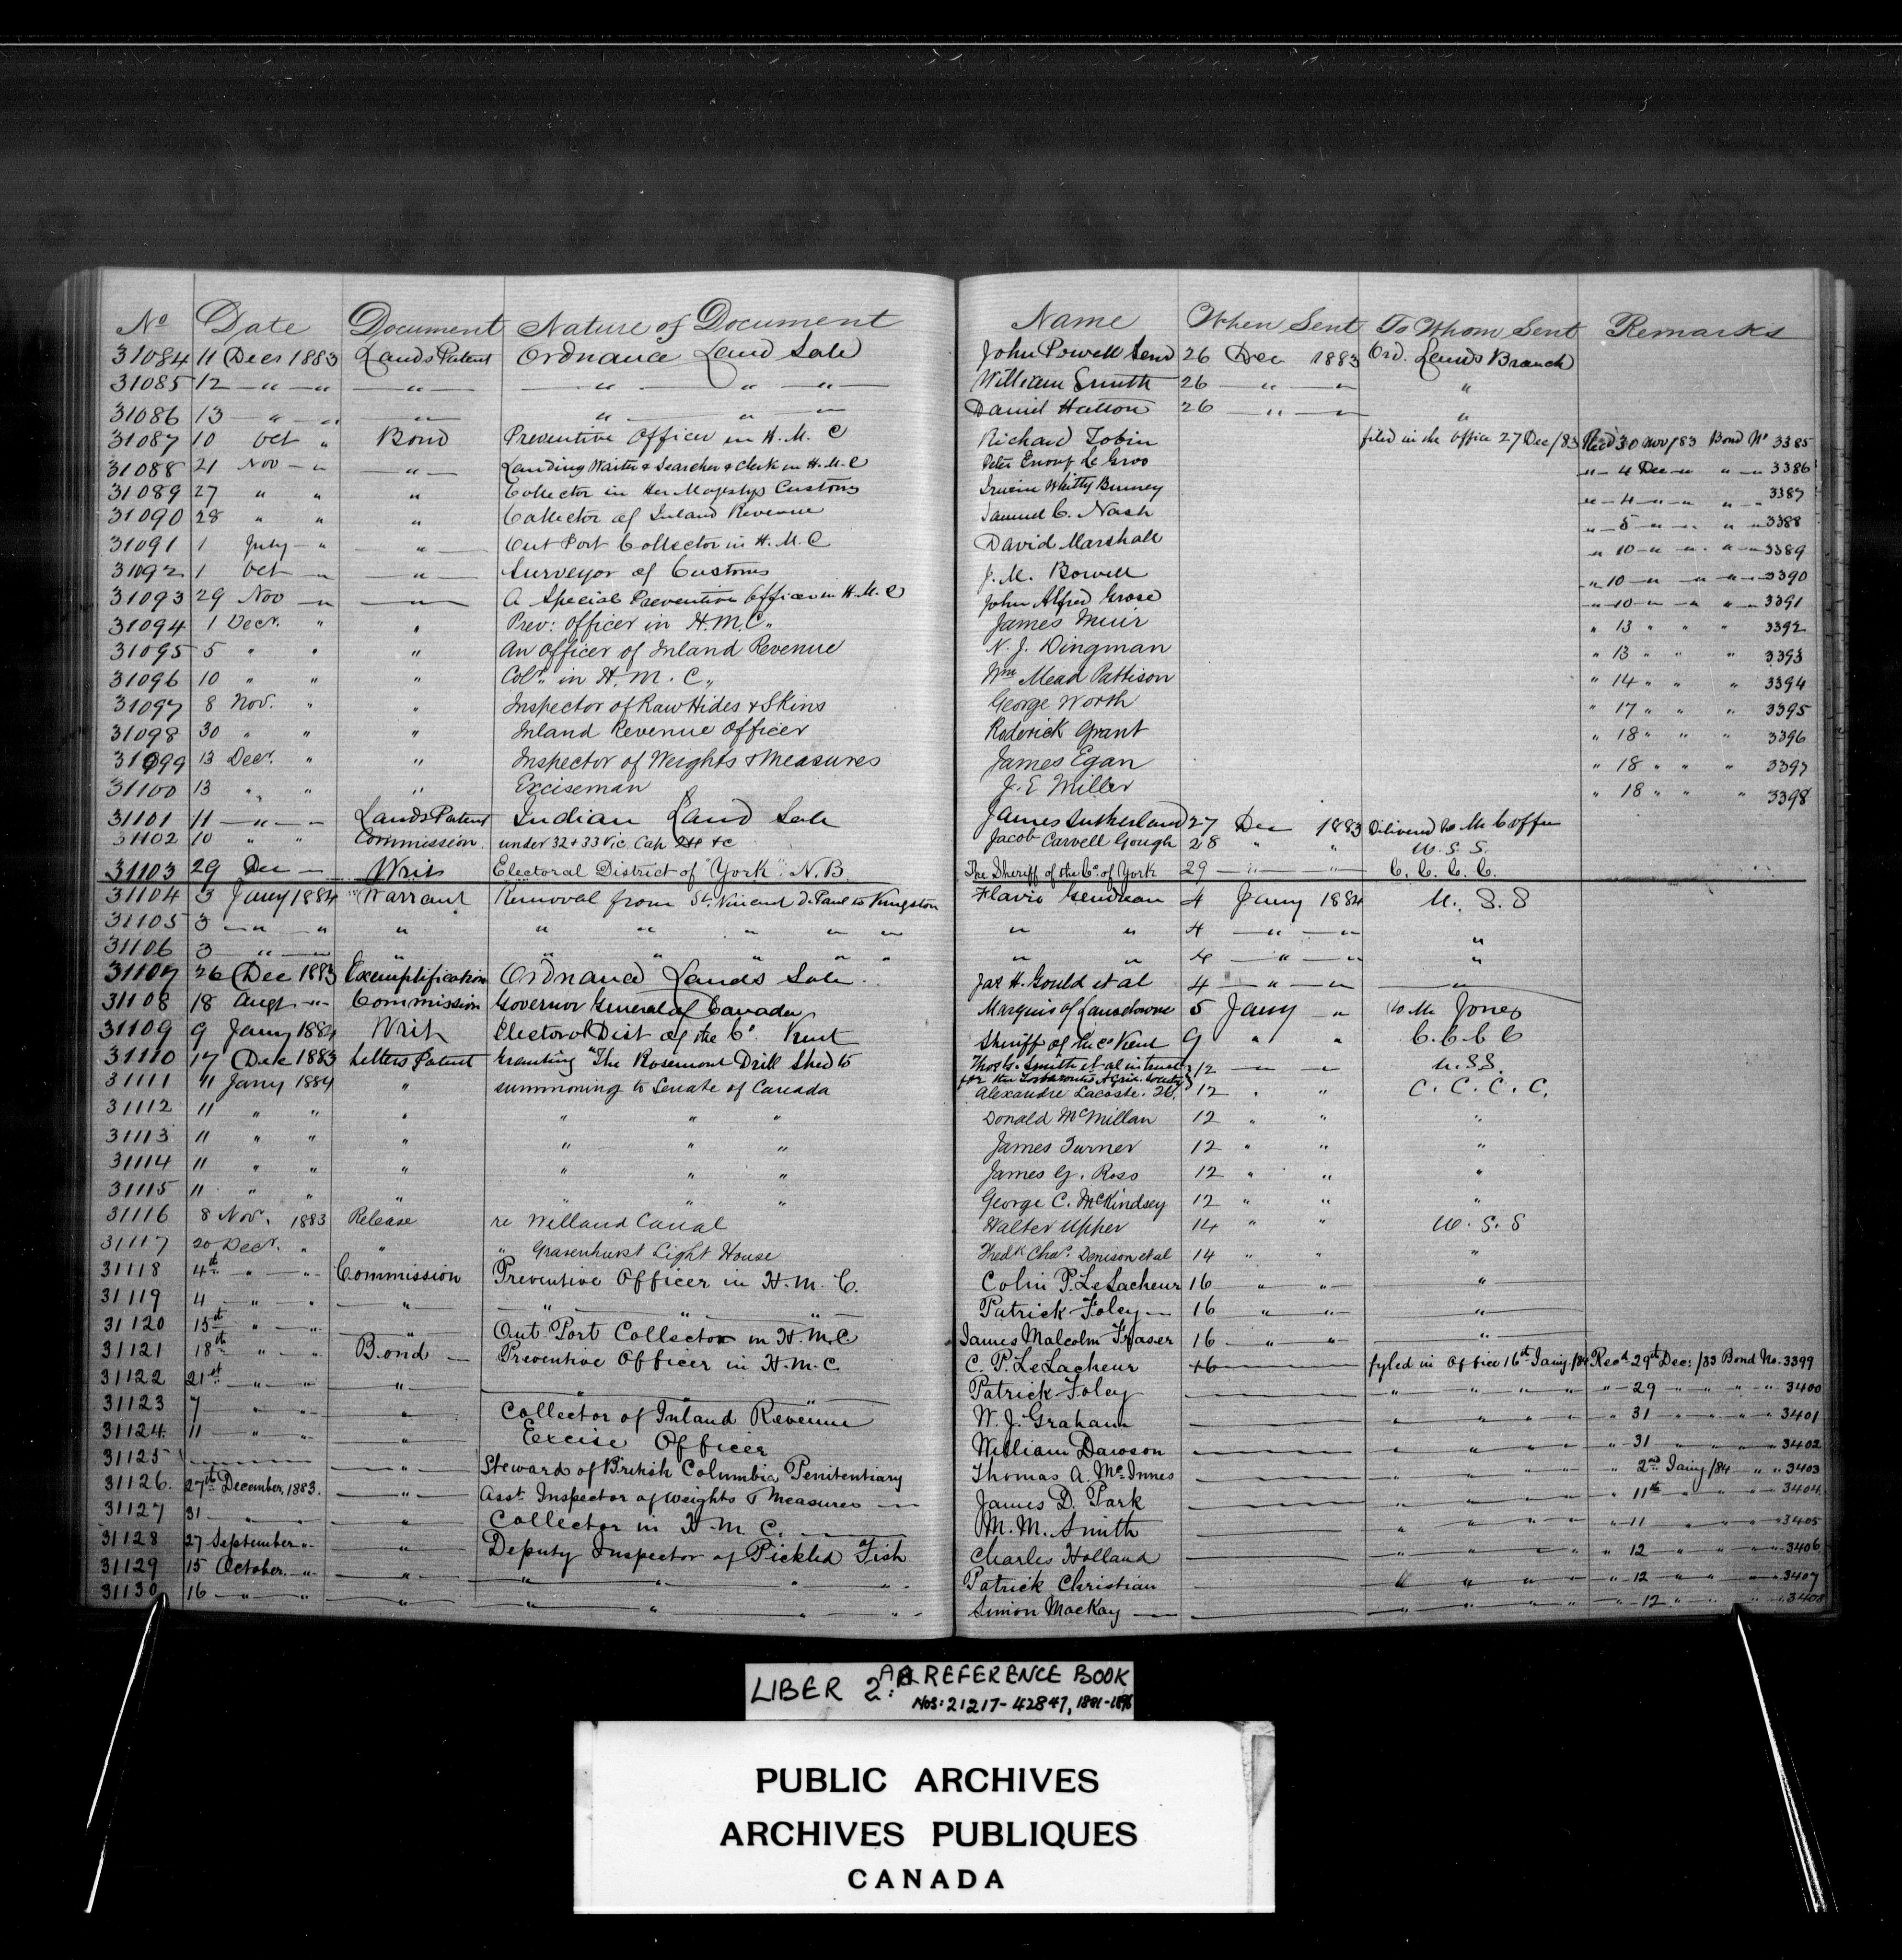 No Date Document Nature of Document Name When Sent To Whom Sent Remarks
31084 11 Decr 1883 Lands Patent Ordnance Land Sale John Powell Senr 26 Dec 1883 Ord. Lands Branch
31085 12 — " — " — " — — " — " — " — William Smith 26 — " — " "
31086 13 — " — " — " — " — " — " — Daniel Hatton 26 — " — " "
31087 10 Oct " Bond Preventive Officer in H. M. C Richard Tobin filed in the office 27 Dec/83 Recd 30 Nov/83 Bond No 3385
31088 21 Nov — " — " — Landing Waiter & Searcher & Clerk in H. M. C Peter Le Gros " — 4 Dec — " " — " 3386
31089 27 " " " Collector in Her Majestys Customs Whitty Burney " — 4 — " — " " — " 3387
31090 28 " " " Collector of Inland Revenue Samuel C. Nash " — 5 — " — " " — " 3388
31091 1 July — " — " — Out Port Collector in H. M. C David Marshall " 10 — " — " " — " 3389
31092 1 Oct — " — " — Surveyor of Customs J. M. Bowell " 10 — " — " " — " 3390
31093 29 Nov — " — " — A Special Preventive Officer in H. M. C John Alfred Grose " 10 — " — " " — " 3391
31094 1 Decr. " " Prev: Officer in H. M. C. James Muir " 13 " " " 3392
31095 5 " " " An Officer of Inland Revenue N. J. Dingman " 13 " " " 3393
31096 10 " " " Colr. in H. M. C. Wm Mead Pattison " 14 " " " 3394
31097 8 Nov. " " Inspector of Raw Hides & Skins George Worth " 17 " " " 3395
31098 30 " " " Inland Revenue Officer Roderick Grant " 18 " " " 3396
31099 13 Decr. " " Inspector of Weights & Measures James Egan " 18 " " " 3397
31100 13 " " " Exciseman J. E Miller " 18 " " " 3398
31101 11 — " — " Lands Patent Indian Land Sale James Sutherland 27 Dec 1883 Delivered to Mr Coffee
31102 10 " " Commission under 32 & 33 Vic. Cap &c Jacob Carvell Gough 28 " " U. S. S.
31103 29 Dec — Writ Electoral District of "York" N. B. The Sheriff of the Co. of York 29 — " — " C. C. C. C.
31104 3 Jany 1884 Warrant Removal from St. Vincent D. Paul to Kingston Flavie Gendreau 4 Jany 1884 U. S. S
31105 3 — " — " " " " " " " " " 4 — " — " "
31106 3 — " — " " " " " " " " " 4 — " — " "
31107 26 Dec 1883 Exemplification Ordnance Lands Sale Jas H. Gould et al 4 — " — " "
31108 18 Augt — " Commission Governor General of Canada Marquis of Lansdowne 5 Jany — " to Mr Jones
31109 9 Jany 1884 Writ Electoral Dist of the Co. Kent Sheriff of the Co Kent 9 " " C. C. C. C
31110 17 Dec 1883 Letters Patent Granting "The Rosemont Drill Shed to Thos. G. Smith et al in trust 12 — " U. S. S.
for the Agric. Society
31111 11 Jany 1884 " summoning to Senate of Canada Alexandre Lacoste. 12 " " C. C. C. C.
31112 11 " " " " " " Donald McMillan 12 " " "
31113 11 " " " " " " James Turner 12 " " "
31114 11 " " " " " " James G. Ross 12 " " "
31115 11 " " " " " " George C. McKindsey 12 " " "
31116 8 Nov. 1883 Release re Welland Canal Walter Upper 14 " " U. S. S
31117 20 Decr. " " " Gravenhurst Light House Fredk Chas. Denison et al 14 " " "
31118 4th " — " Commission Preventive Officer in H. M. C. Colin P. LeLacheur 16 " " "
31119 4 — " — " — " — — " — " — " — Patrick Foley 16 " " "
31120 15th " — " — " — Out Port Collector in H. M. C James Malcolm Fraser 16 — " — " "
31121 18th " — " Bond — Preventive Officer in H. M. C. C. P. LeLacheur 16 fyled in Office 16th Jany/84 Recd 29th Dec:/83 Bond No. 3399
31122 21st " — " — " — — " — " — Patrick Foley " " " " " — 29 — " " " " 3400
31123 7 " — " — " — Collector of Inland Revenue W. J. Graham " " " " " 31 — " " " " 3401
31124 11 " — " — " — Excise Officer William Dawson " " " " " 31 " " " 3402
31125 — " — Steward of British Columbia Penitentiary Thomas A. McInnes " " " " " 2nd Jany/84 " " 3403
31126. 27th December, 1883. — " — Asst. Inspector of Weights & Measures — James D. Park " " " " " 11th " " " 3404
31127 31 " " — " — Collector in H. M. C. — M. M. Smith " " " " " — 11 " " " 3405
31128 27 September " — " — Deputy Inspector of Pickled Fish Charles Holland " " " " " — 12 " " " 3406
31129 15 October " — " — " " " " Patrick Christian " " " " " — 12 " " " 3407
31130 16 — " — " — " — " " " " Simon MacKay — " " " " " — 12 " " " 3408
LIBER 2: REFERENCE BOOK
NOS: 21217-42847, 1881-1896
PUBLIC ARCHIVES
ARCHIVES PUBLIQUES
CANADA